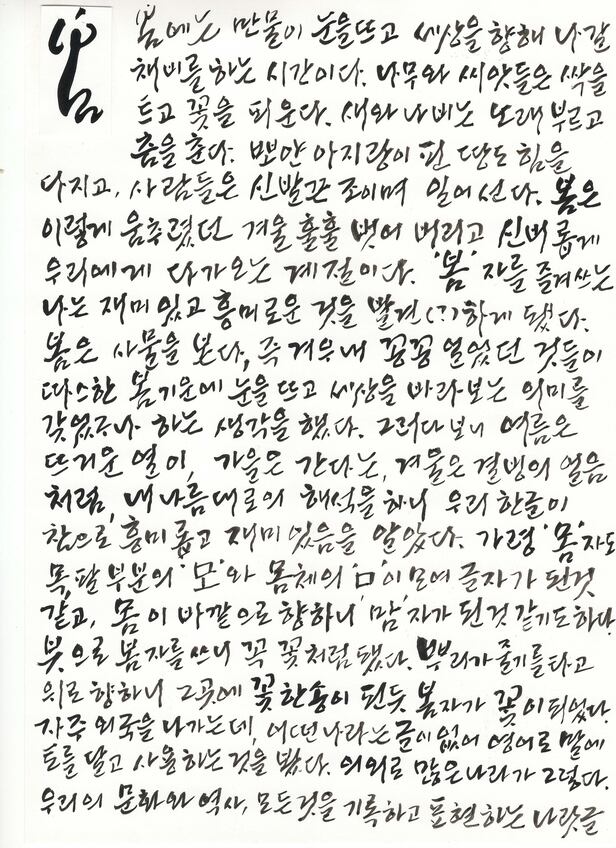 봄
봄에는 만물이 눈을 뜨고 세상을 향해 나갈
채비를 하는 시간이다. 나무와 씨앗들은 싹을
트고 꽃을 피운다. 새와 나비는 노래 부르고
춤을 춘다. 뽀얀 아지랑이 핀 땅도 힘을
다지고, 사람들은 신발끈 조이며 일어선다. 봄은
이렇게 움추렸던 겨울 훌훌 벗어 버리고 신비롭게
우리에게 다가오는 계절이다. '봄' 자를 즐겨쓰는
나는 재미있고 흥미로운 것을 발견(?)하게 됐다.
봄은 사물을 본다, 즉 겨우내 꽁꽁 얼었던 것들이
따스한 봄기운에 눈을 뜨고 세상을 바라보는 의미를
갖었구나 하는 생각을 했다. 그러다보니 여름은
뜨거운 열이, 가을은 간다는, 겨울은 결빙의 얼음
처럼, 내 나름대로의 해석을 하니 우리 한글이
참으로 흥미롭고 재미있음을 알았다. 가령 '몸'자도
목, 팔 부분의 '모'와 몸체의 'ㅁ'이 모여 글자가 된것
같고, 몸이 바깥으로 향하니 '맘'자가 된 것 같기도하다.
붓으로 봄자를 쓰니 꼭 꽃처럼 됐다. 뿌리가 줄기를 타고
위로 향하니 그곳에 꽃 한송이 핀듯 봄자가 꽃이 되었다
자주 외국을 나가는데, 어떤나라는 글이 없어 영어로 말에
토를 달고 사용하는것을 봤다. 의외로 많은나라가 그렇다.
우리의 문화와 역사, 모든것을 기록하고 표현하는 나랏글